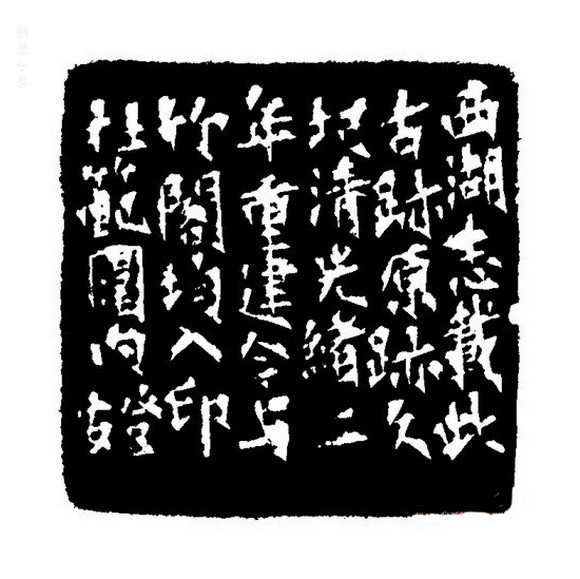 西湖志載此
古跡原跡久
圮清光緒二
年重建今與
竹閣均入印
社範圍內